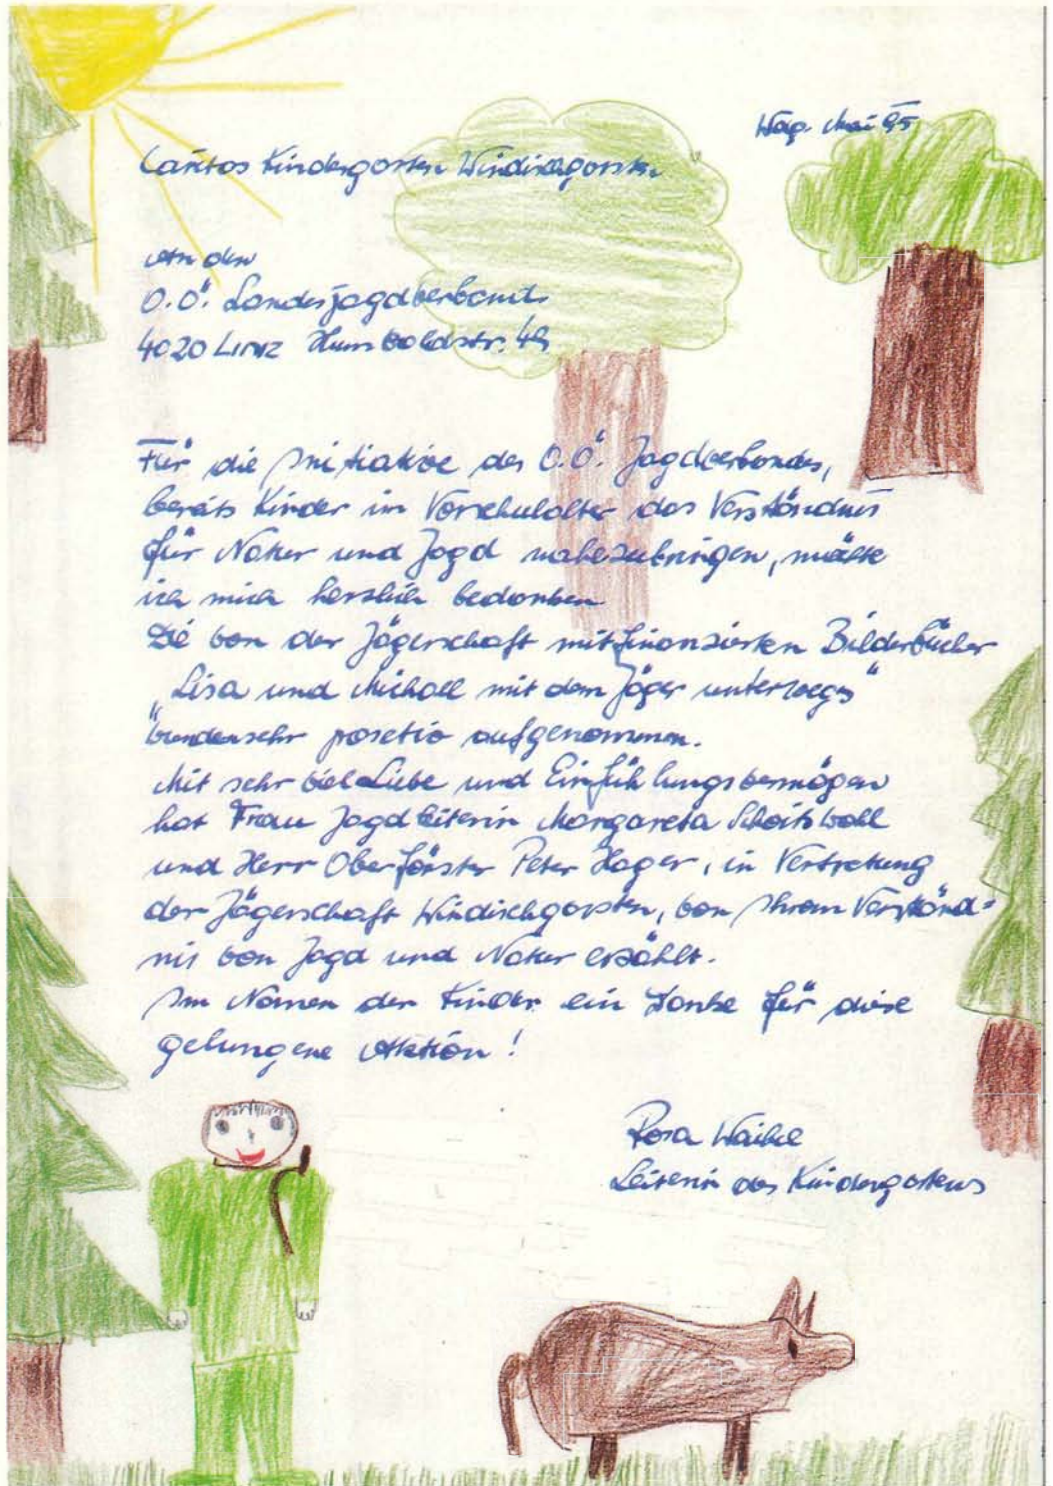 Wdg. Mai 95
Caritas Kindergarten Windischgarsten
An den
O.Ö. Landesjagdverband
4020 Linz Humboldstr. 49
Für die Initiative des O.Ö. Jagdverbandes,
bereits Kinder im Vorschulalter das Verständnis
für Natur und Jagd nahezubringen, möchte
ich mich herzlich bedanken.
Die von der Jägerschaft mitfinanzierten Bilderbücher
"Lisa und Michael mit dem Jäger unterwegs"
wurden sehr positiv aufgenommen.
Mit sehr viel Liebe und Einfühlungsvermögen
hat Frau Jagdleiterin Margareta
und Herr Oberförster Peter Hager, in Vertretung
der Jägerschaft Windischgarsten, von Ihrem Verständ=
nis von Jagd und Natur erzählt.
Im Namen der Kinder ein Danke für diese
gelungene Aktion!
Rosa Waibel
Leiterin des Kindergartens